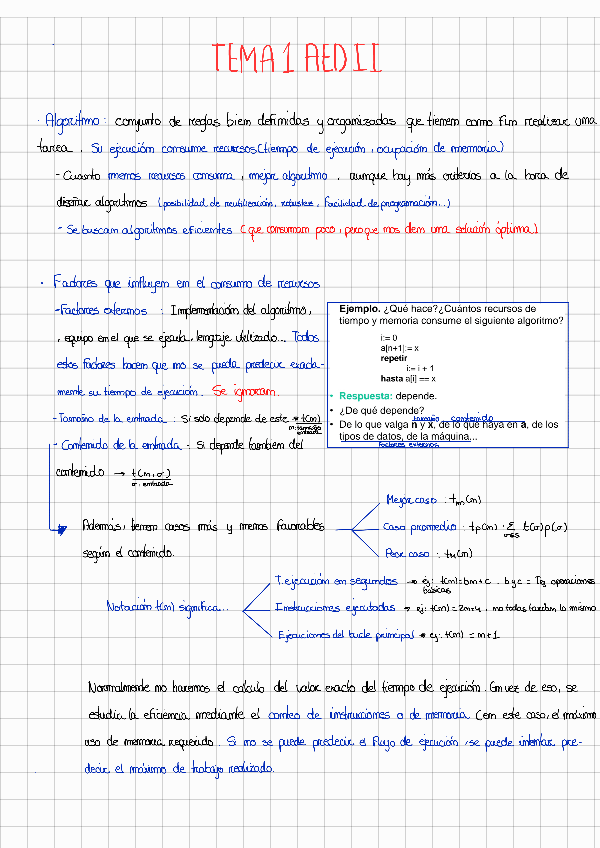 TEMA 1 AED II
· Algoritmo: conjunto de reglas bien definidas y organizadas que tienen como fin realizar una
tarea. Su ejecución consume recursos (tiempo de ejecución, ocupación de memoria)
- Cuanto menos recursos consuma, mejor algoritmo. aunque hay más criterios a la hora de
diseñar algoritmos (posibilidad de reutilización, robustez, facilidad de programación...)
- Se buscan algoritmos eficientes (que consuman poco, pero que nos den una solución óptima)
· Factores que influyen en el consumo de recursos
- Factores externos : Implementación del algoritmo,
, equipo en el que se ejecuta, lenguaje utilizado... Todos
estos factores hacen que no se pueda predecir exacta-
mente su tiempo de ejecución. Se ignoran.
- Tamaño de la entrada : Si solo depende de este → t(n)
n: tamaño entrada
- Contenido de la entrada : Si depende tambien del
contenido → t(n, σ)
σ: entrada
Ejemplo. ¿Qué hace? ¿Cuántos recursos de
tiempo y memoria consume el siguiente algoritmo?
i:= 0
a[n+1]:= x
repetir
i:= i + 1
hasta a[i] == x
• Respuesta: depende.
• ¿De qué depende?
tamaño contenido
• De lo que valga n y x, de lo que haya en a, de los
tipos de datos, de la máquina...
factores externos
Además, tienen casos más y menos favorables
según el contenido.
Mejor caso : tm(n)
Caso promedio : tp(n) · Σ t(σ)p(σ)
σ∈S
Peor caso : tM(n)
Notación t(n) significa...
T. ejecución en segundos → ej: t(n)=bn+c . b y c = T de operaciones
básicas
Instrucciones ejecutadas → ej: t(n)=2n+4 , no todas tardan lo mismo
Ejecuciones del bucle principal → ej: t(n) = n+1
Normalmente no haremos el calculo del valor exacto del tiempo de ejecución. En vez de eso, se
estudia la eficiencia mediante el conteo de instrucciones o de memoria (en este caso, el máximo
uso de memoria requerido. Si no se puede predecir el flujo de ejecución, se puede intentar pre-
decir el máximo de trabajo realizado.